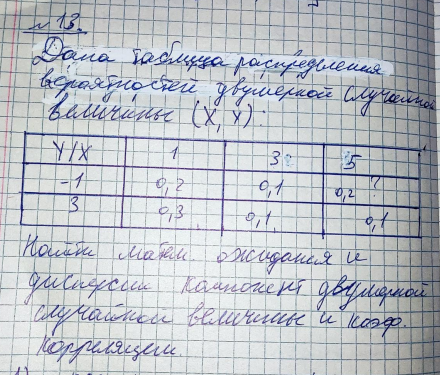 №13.
Дана таблица распределения
вероятностей двумерной случайной
величины (X, Y):
Y/X 1 3 5
-1 0,2 0,1 0,2 ?
3 0,3 0,1 0,1
Найти матем. ожидания и
дисперсии компонент двумерной
случайной величины и коэф.
корреляции.